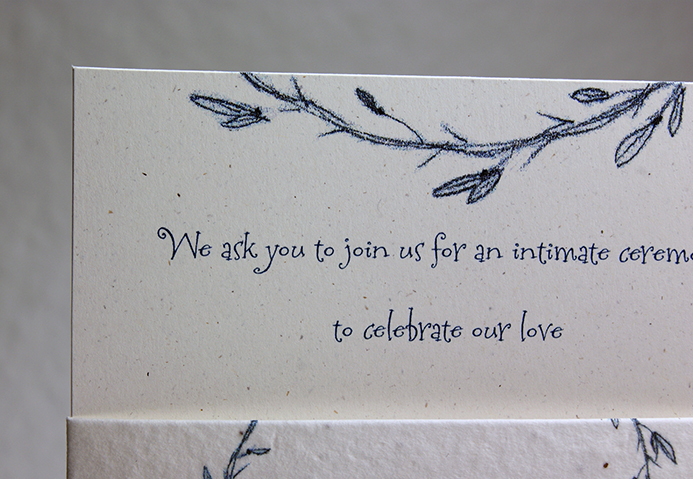 We ask you to join us for an intimate cerem
to celebrate our love